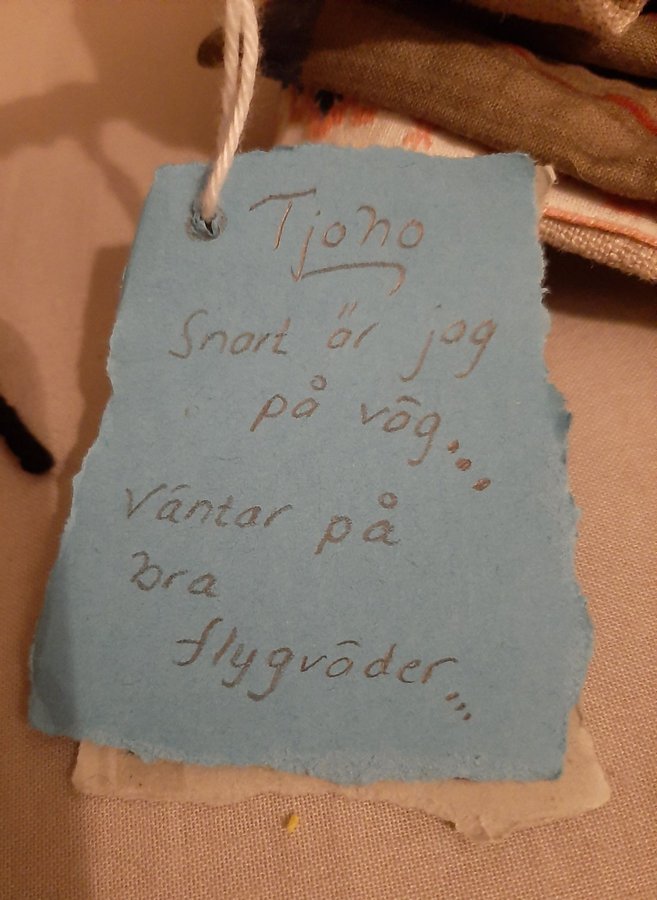 Tjoho
Snart är jag
på väg...
Väntar på
bra
flygväder...